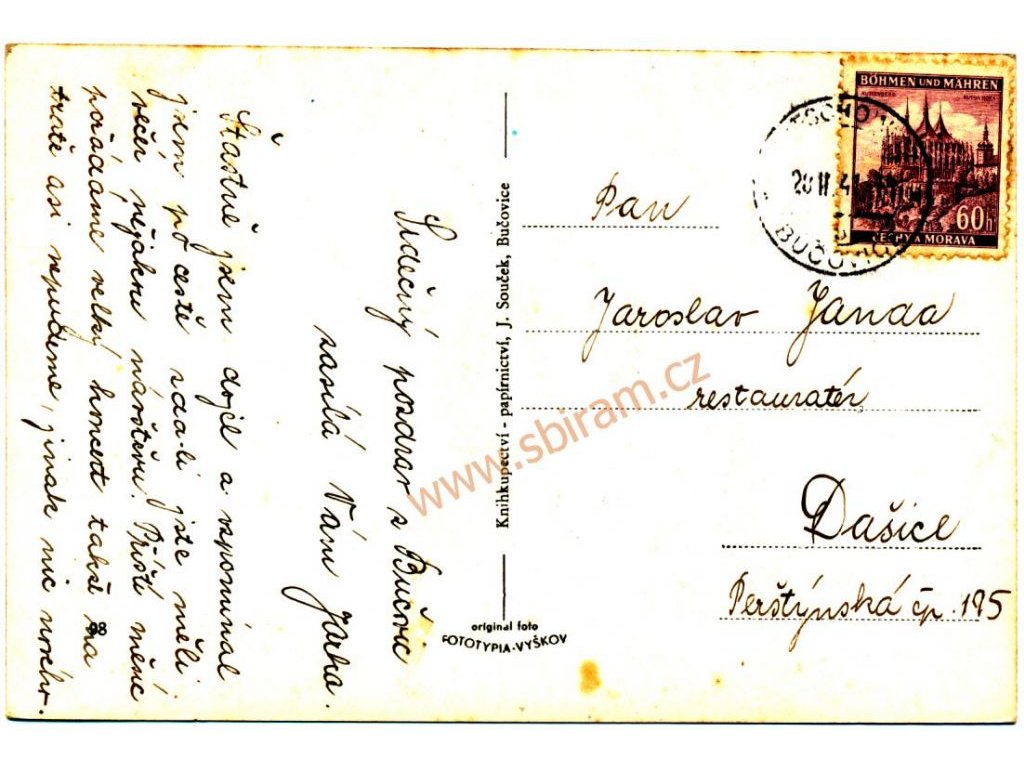 Srdečný pozdrav z Bučovic
zasílá Vám Jarka.
Šťastně jsem dojel a vzpomínal
jsem po cestě zda-li jste měli
večer nějakou návštěvu. Příští měsíc
pořádáme velký koncert takže na
trati asi nepudeme, jinak nic nového.
98
Knihkupectví - papírnictví, J. Souček, Bučovice
original foto
FOTOTYPIA-VYŠKOV
BÖHMEN UND MÄHREN
KUTTENBERG KUTNÁ HORA
60h
ČECHY A MORAVA
BUČOVICE
Pan
Jaroslav Janda
restauratér
Dašice
Perštýnská čp. 195
www.sbiram.cz